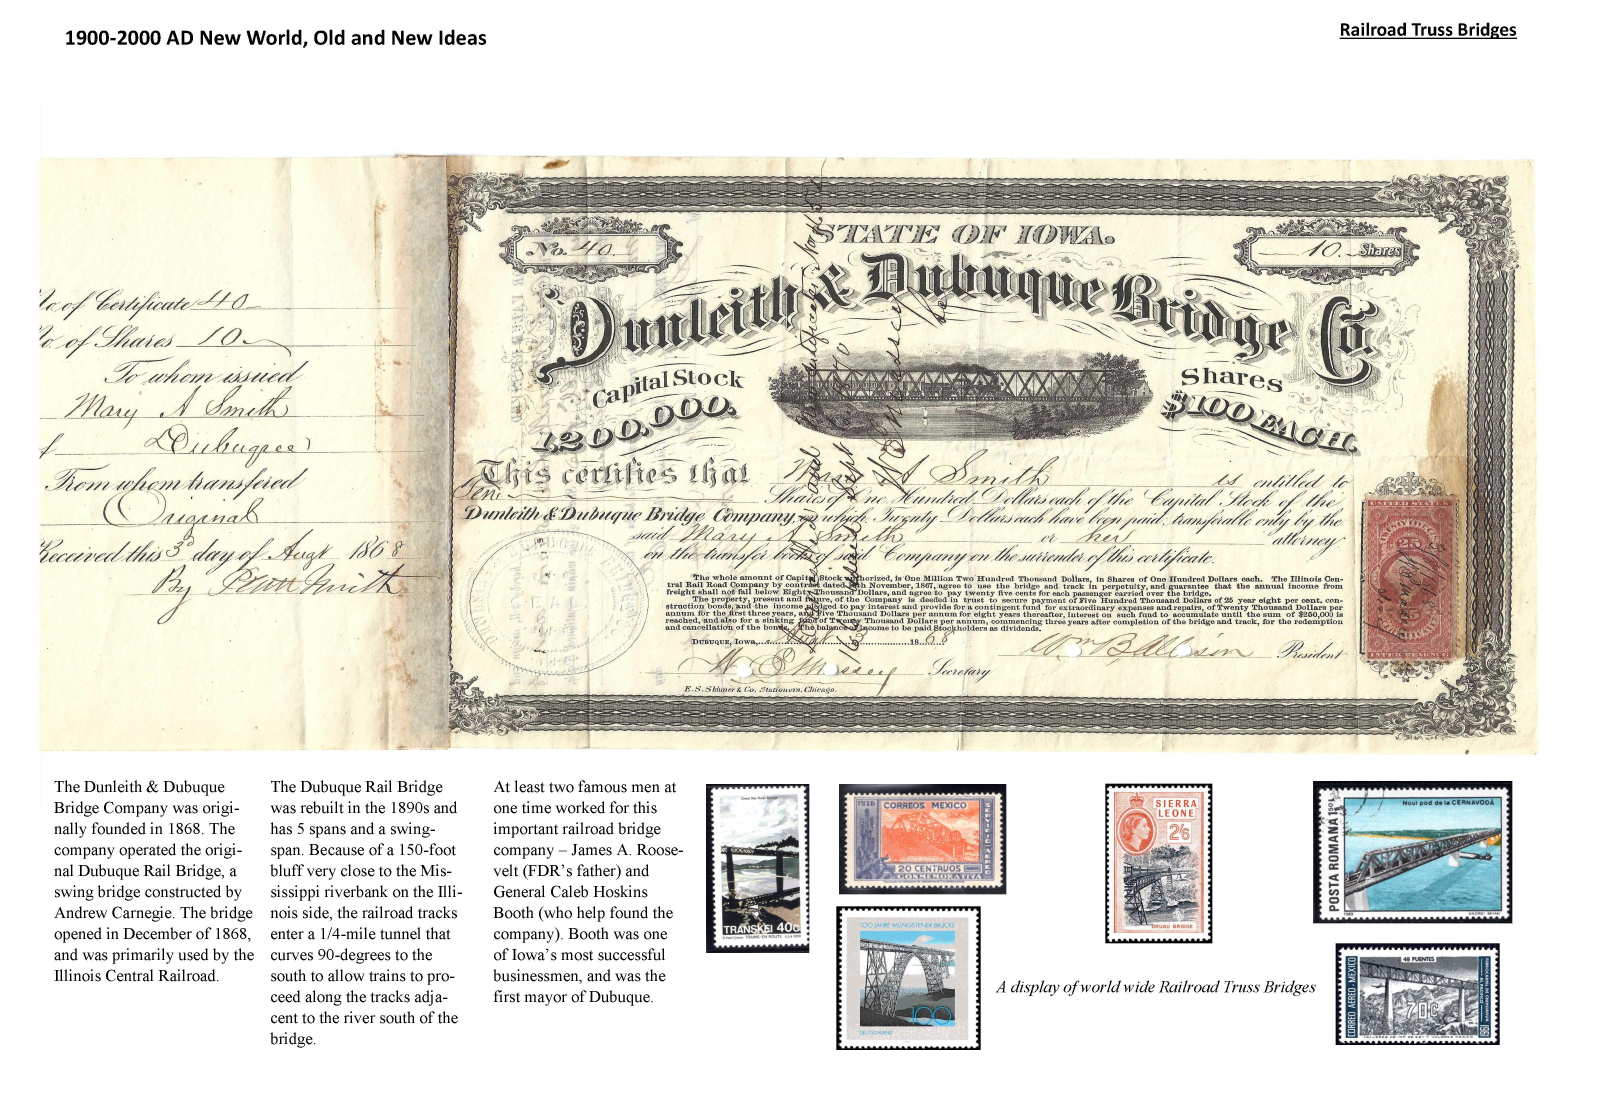 1900-2000 AD New World, Old and New Ideas
Railroad Truss Bridges
No of Certificate 40
No. of Shares 10
To whom issued
Mary A Smith
of Dubuque
From whom transferred
Original
Received this 3d day of Augt 1868
By
No. 40.
STATE OF IOWA.
10. Shares
Dunleith & Dubuque Bridge Co.
Capital Stock
1,200,000.
Shares
$100 EACH.
This certifies that Mary A Smith is entitled to
Ten Shares of One Hundred Dollars each of the Capital Stock of the
Dunleith & Dubuque Bridge Company, on which Twenty Dollars each have been paid, transferable only by the
said Mary A Smith or her attorney
on the transfer books of said Company on the surrender of this certificate.
The whole amount of Capital Stock authorized, is One Million Two Hundred Thousand Dollars, in Shares of One Hundred Dollars each. The Illinois Cen-
tral Rail Road Company by contract dated November, 1867, agree to use the bridge and track in perpetuity, and guarantee that the annual income from
freight shall not fall below Eighty Thousand Dollars, and agree to pay twenty five cents for each passenger carried over the bridge.
The property, present and future, of the Company is deeded in trust to secure payment of Five Hundred Thousand Dollars of 25 year eight per cent. con-
struction bonds, and the income pledged to pay interest and provide for a contingent fund for extraordinary expenses and repairs, of Twenty Thousand Dollars per
annum for the first three years, and Five Thousand Dollars per annum for eight years thereafter, interest on such fund to accumulate until the sum of $250,000 is
reached, and also for a sinking fund of Twenty Thousand Dollars per annum, commencing three years after completion of the bridge and track, for the redemption
and cancellation of the bonds. The balance of income to be paid Stockholders as dividends.
DUBUQUE, Iowa, 1868
Secretary
President
E.S. Skinner & Co. Stationers, Chicago.
UNITED STATES
25
INTER. REVENUE
The Dunleith & Dubuque
Bridge Company was origi-
nally founded in 1868. The
company operated the origi-
nal Dubuque Rail Bridge, a
swing bridge constructed by
Andrew Carnegie. The bridge
opened in December of 1868,
and was primarily used by the
Illinois Central Railroad.
The Dubuque Rail Bridge
was rebuilt in the 1890s and
has 5 spans and a swing-
span. Because of a 150-foot
bluff very close to the Mis-
sissippi riverbank on the Illi-
nois side, the railroad tracks
enter a 1/4-mile tunnel that
curves 90-degrees to the
south to allow trains to pro-
ceed along the tracks adja-
cent to the river south of the
bridge.
At least two famous men at
one time worked for this
important railroad bridge
company – James A. Roose-
velt (FDR's father) and
General Caleb Hoskins
Booth (who help found the
company). Booth was one
of Iowa's most successful
businessmen, and was the
first mayor of Dubuque.
TRANSKEI 40c
1936 CORREOS MEXICO
SERVICIO AEREO
20 CENTAVOS
CONMEMORATIVA
100 JAHRE MÜNGSTENER BRÜCKE
100
DEUTSCHLAND
SIERRA
LEONE
2/6
ORUGU BRIDGE
Noul pod de la CERNAVODĂ
POSTA ROMANA 1.50L
1989
ANDREI MIHAI
A display of world wide Railroad Truss Bridges
46 PUENTES
CORREO AEREO - MEXICO
70C